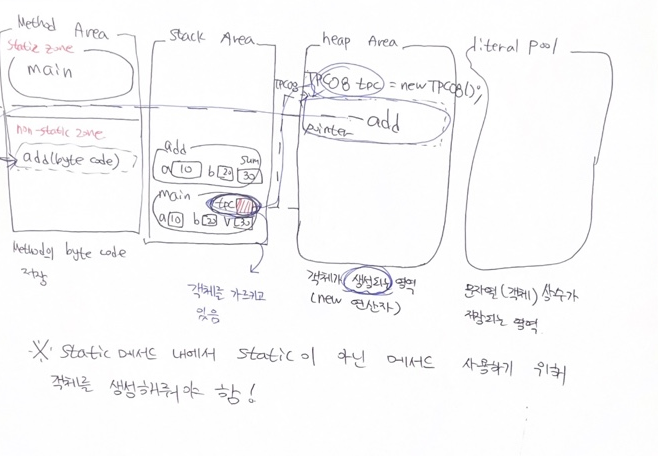 Method Area
static zone
main
non-static zone
add(byte code)
Method의 byte code
저장
stack Area
add
sum
a 10 b 20 30
main
tpc
a 10 b 20 V 30
객체를 가르키고
있음
heap Area
TPC08
TPC08 tpc = new TPC08();
add
pointer
객체가 생성되는 영역
(new 연산자)
literal Pool
문자열(객체) 상수가
저장되는 영역.
※ static 메서드 내에서 static이 아닌 메서드 사용하기 위해
객체를 생성해줘야 함!